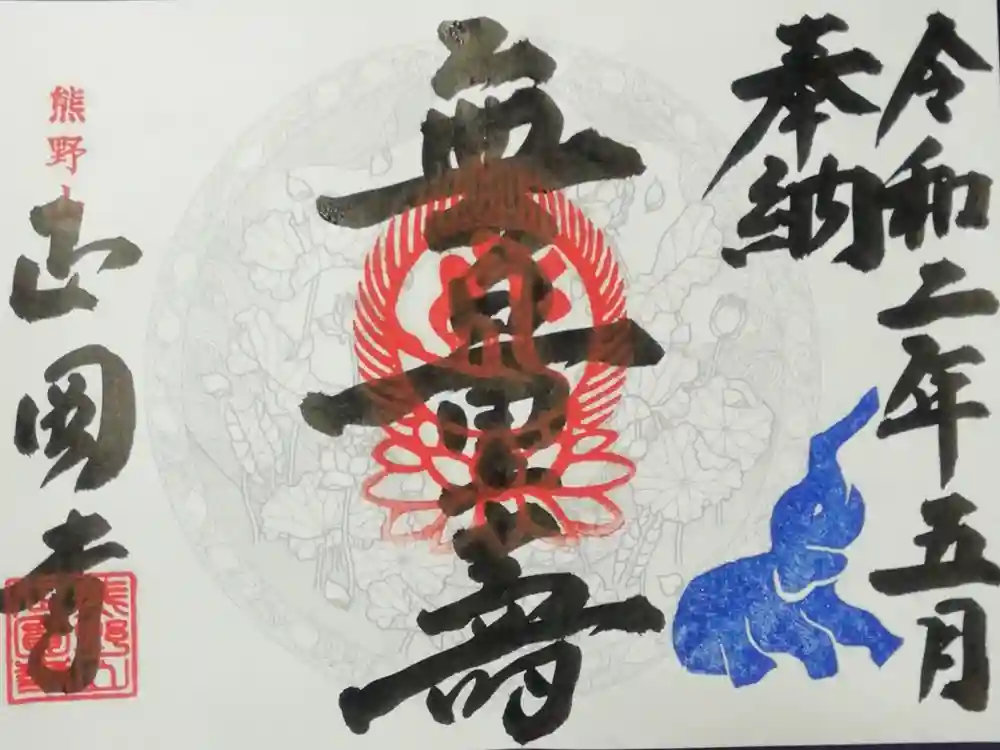 令和二年五月
奉納
無量壽
熊野
寺